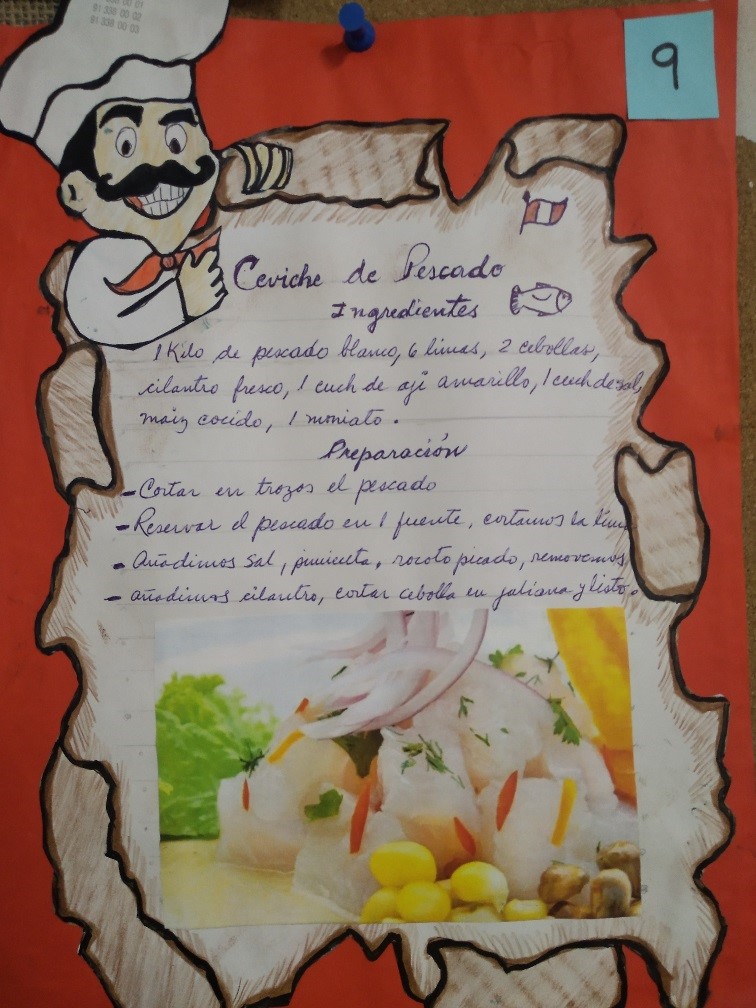 91 338 00 02
91 338 00 03
9
Ceviche de Pescado
Ingredientes
1 Kilo de pescado blanco, 6 limas, 2 cebollas,
cilantro fresco, 1 cuch de ají amarillo, 1 cuch de sal,
maiz cocido, 1 moniato.
Preparación
- Cortar en trozos el pescado
- Reservar el pescado en 1 fuente, cortamos la lima
- Añadimos sal, pimienta, rocoto picado, removemos
- añadimos cilantro, cortar cebolla en juliana y listo.